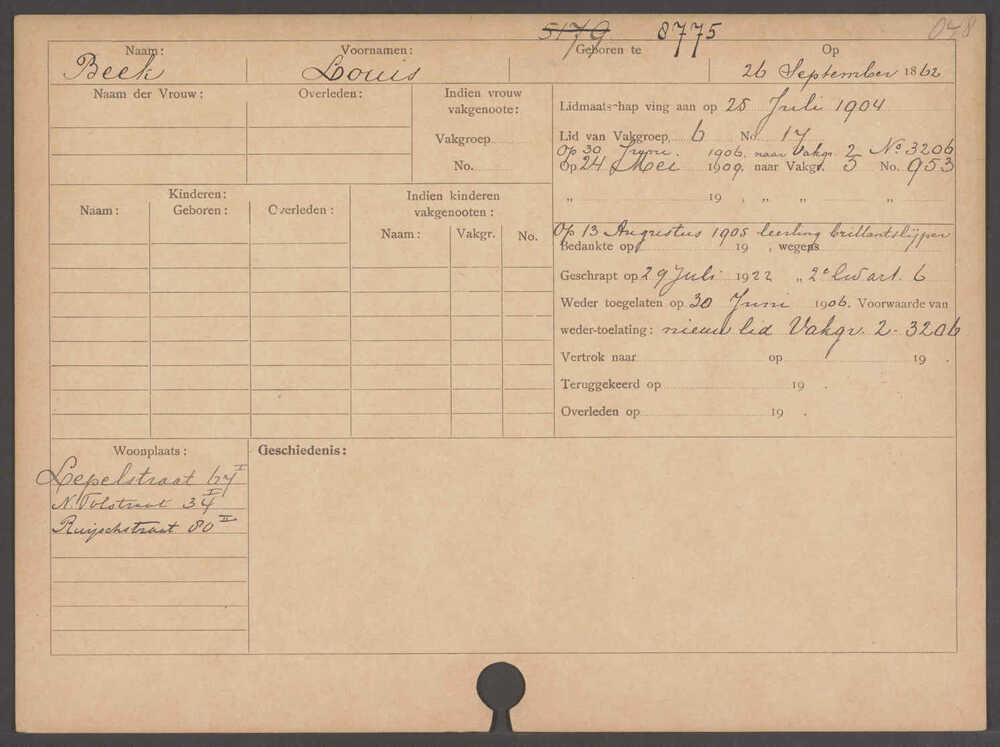 5179 8775 048
Naam: Voornamen: Geboren te Op
Beek Louis 26 September 1862
Naam der Vrouw: Overleden: Indien vrouw vakgenoote:
Vakgroep
No.
Lidmaatschap ving aan op 25 Juli 1904
Lid van Vakgroep 6 No 17
Op 30 Juni 1906, naar Vakgr. 2 No 3206
Op 24 Mei 1909, naar Vakgr. 5 No. 953
„ 19 , „ „ „
Kinderen: Indien kinderen vakgenooten:
Naam: Geboren: Overleden: Naam: Vakgr. No.
Op 13 Augustus 1905 leerling brillantslijper
Bedankte op 19 , wegens
Geschrapt op 29 Juli 1922 „ 2e lid art. 6
Weder toegelaten op 30 Juni 1906. Voorwaarde van
weder-toelating: nieuw lid Vakgr. 2 - 3206
Vertrok naar op 19 .
Teruggekeerd op 19 .
Overleden op 19 .
Woonplaats: Geschiedenis:
Lepelstraat 67 I
N. Tolstraat 34 I
Ruijschstraat 80 II